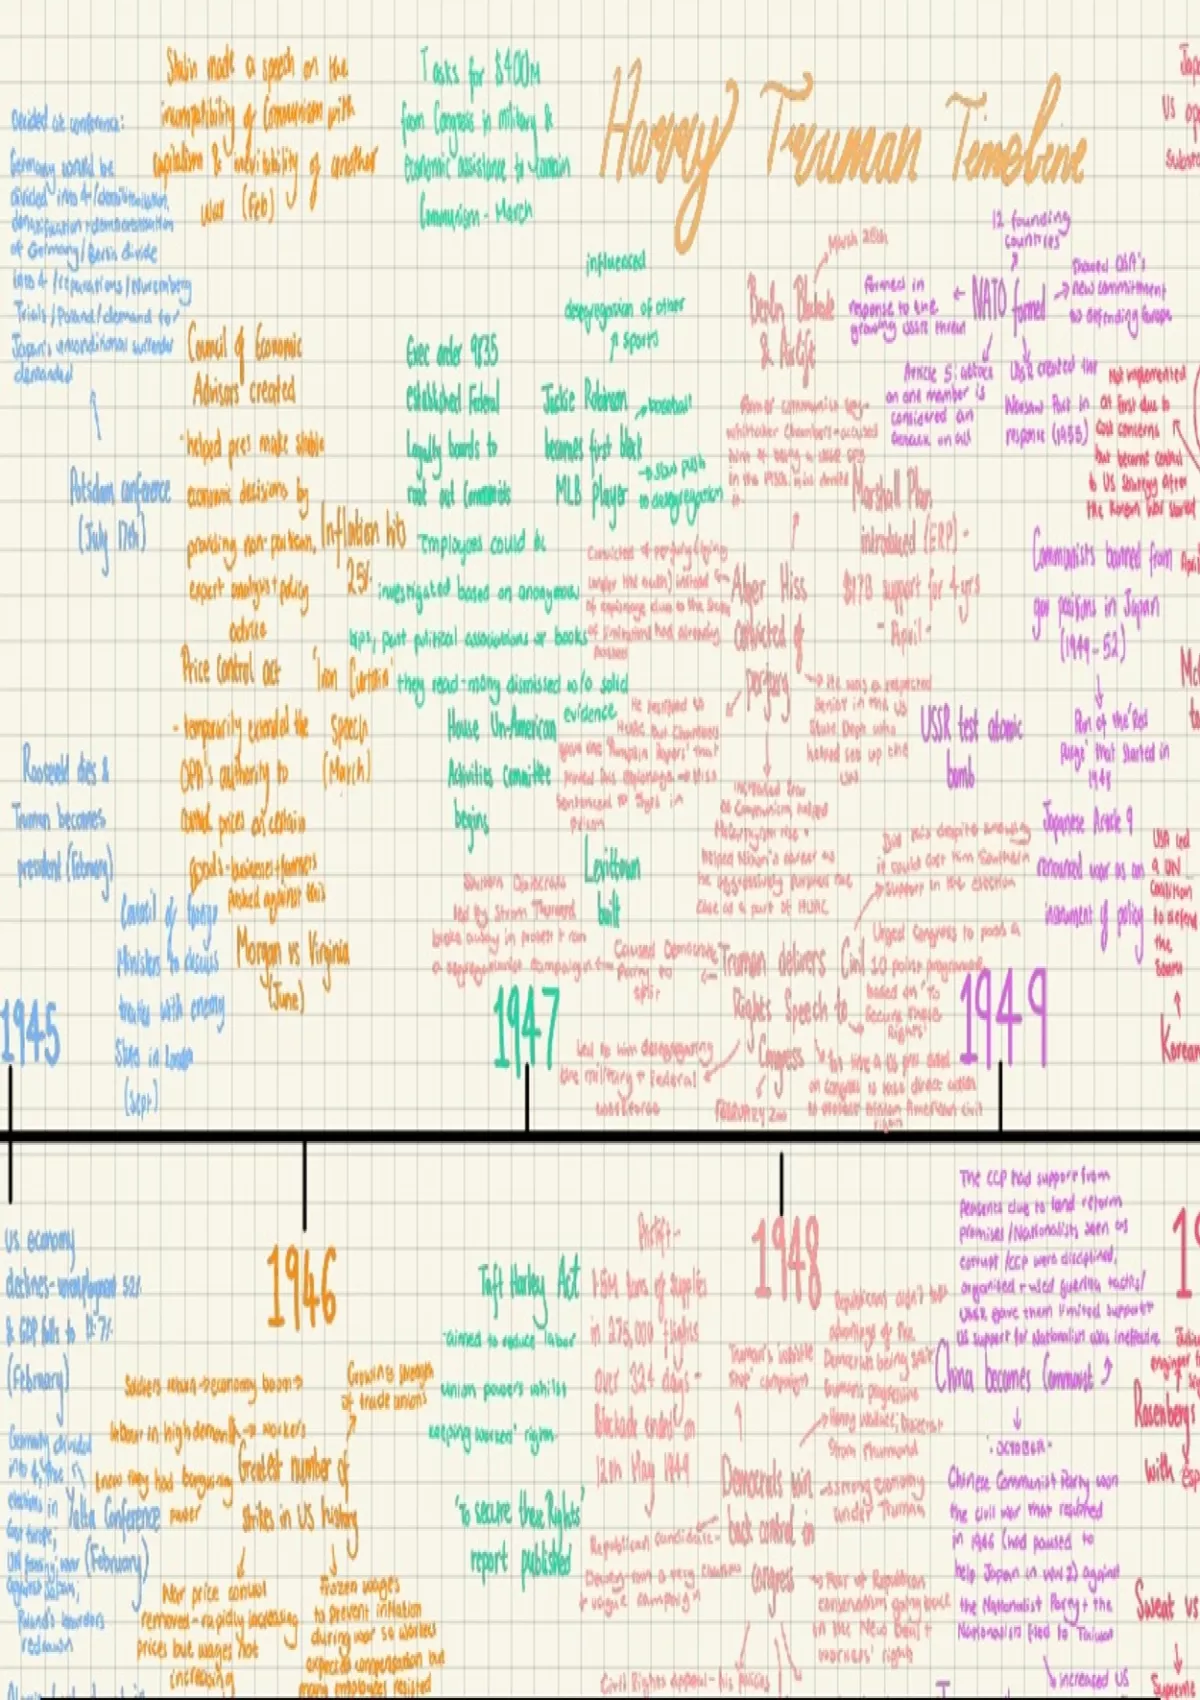 Harry Truman Timeline
Decided at conference:
Germany would be
divided into 4/demilitarisation,
denazification + democratisation
of Germany/Berlin divide
into 4/reparations/Nuremberg
Trials/Poland/demand for
Japan's unconditional surrender
demanded
Potsdam conference
(July 17th)
Roosevelt dies &
Truman becomes
president (February)
Council of Foreign
Ministers to discuss
treaties with enemy
States in London
(Sept)
1945
Stalin made a speech on the
incompatibility of Communism with
capitalism & inevitability of another
war (Feb)
Council of Economic
Advisors created
-helped pres make stable
economic decisions by
providing non-partisan,
expert analysis + policy
advice
Inflation hits
25%
Price Control act
- temporarily extended the
OPA's authority to
control prices on certain
goods - businesses + farmers
pushed against this
'Iron Curtain'
speech
(March)
Morgan vs Virginia
(June)
Tasks for $400M
from Congress in military &
Economic assistance to contain
Communism - March
Exec order 9835
established Federal
Loyalty boards to
root out Commies
employees could be
investigated based on anonymous
tips, past political associations or books
they read - many dismissed w/o solid
evidence
influenced
desegregation of other
sports
Jackie Robinson
becomes first black
MLB player
baseball
slow push
to desegregation
House Un-American
Activities committee
begins
Levittown
built
1947
March 25th
Berlin Blockade
& Airlift
Former communist spy -
Whittaker Chambers - accused
him of being a USSR spy
in the 1930s, Hiss denied
it.
Marshall Plan
introduced (ERP) -
$17B support for 4 yrs
- April -
Convicted of perjury (lying
under the oath) instead
of espionage due to the statute
of limitations had already
passed
Alger Hiss
convicted of
perjury
He was a respected
senior in the US
State Dept who
helped set up the
UN
He testified to
HUAC but Chambers
gave the 'Pumpkin Papers' that
proved his espionage → Hiss
sentenced to 5yrs in
prison
increased fear
of Communism, helped
McCarthyism rise +
helped Nixon's career as
he aggressively pursued the
case as a part of HUAC
Did this despite knowing
it could cost him Southern
support in the election
Southern Democrats
led by Strom Thurmond
broke away in protest + ran
a segregationist campaign
Caused Democratic
Party to
split
Truman delivers Civil
Rights Speech to
Congress
Urged Congress to pass a
10 point programme
based on 'To
Secure These
Rights'
Led to him desegregating
the military + Federal
workforce
FEBRUARY 2nd
1st time a US pres asked
on congress to take direct action
to protect African American civil
rights
12 founding
countries
NATO formed
formed in
response to the
growing USSR threat
Showed USA's
new commitment
to defending Europe
Article 5: attack
on one member is
considered an
attack on all
USSR created the
Warsaw Pact in
response (1955)
Communists banned from
gov positions in Japan
(1949-52)
Part of the 'Red
Purge' that started in
1948
USSR test atomic
bomb
Japanese Article 9
renounced war as an
instrument of policy
1949
US
Not implemented
at first due to
cost concerns
but became central
to US strategy after
the Korean War started
USA led
a UN
coalition
to defend
the
South
Korean
US economy
declines - unemployment 5.2%
& GDP falls to
(February)
Germany divided
into 4, free
elections in
East Europe,
UN
against Japan;
Poland's boarders
redrawn
Yalta Conference
(February)
1946
Soldiers return → economy boom →
labour in high demand → worker's
know they had bargaining
power
Growing strength
of trade unions
Greatest number of
strikes in US history
War price control
removed - rapidly increasing
prices but wages not
increasing
Frozen wages
to prevent inflation
during war so workers
expected compensation but
many employees resisted
Taft Hartley Act
-aimed to reduce labor
union powers whilst
keeping workers' rights
'To secure these Rights'
report published
Airlift -
1.5M tons of supplies
in 275,000 flights
over 324 days -
Blockade ended on
12th May 1949
1948
Truman's 'whistle
stop' campaign
Republicans didn't take
advantage of the
Democrats being split
Truman, progressive
Henry Wallace, Dixiecrat
Strom Thurmond
strong economy
under Truman
Democrats win
back control in
congress
Republican candidate -
Dewey - ran a very cautious
+ vague campaign
Fear of Republican
conservatism going back
on the New Deal +
workers' rights
Civil Rights appeal - his policies
The CCP had support from
Peasants due to land reform
promises/Nationalists seen as
corrupt/CCP were disciplined,
organised + used guerilla tactics/
USSR gave them limited support/
US support for Nationalists was ineffective
China becomes Communist
- OCTOBER -
Chinese Communist Party won
the civil war that restarted
in 1946 (had paused to
help Japan in WW2) against
the Nationalist Party + the
Nationalists fled to Taiwan
increased US
engineer
Rosenbergs
with
Sweat vs
Supreme